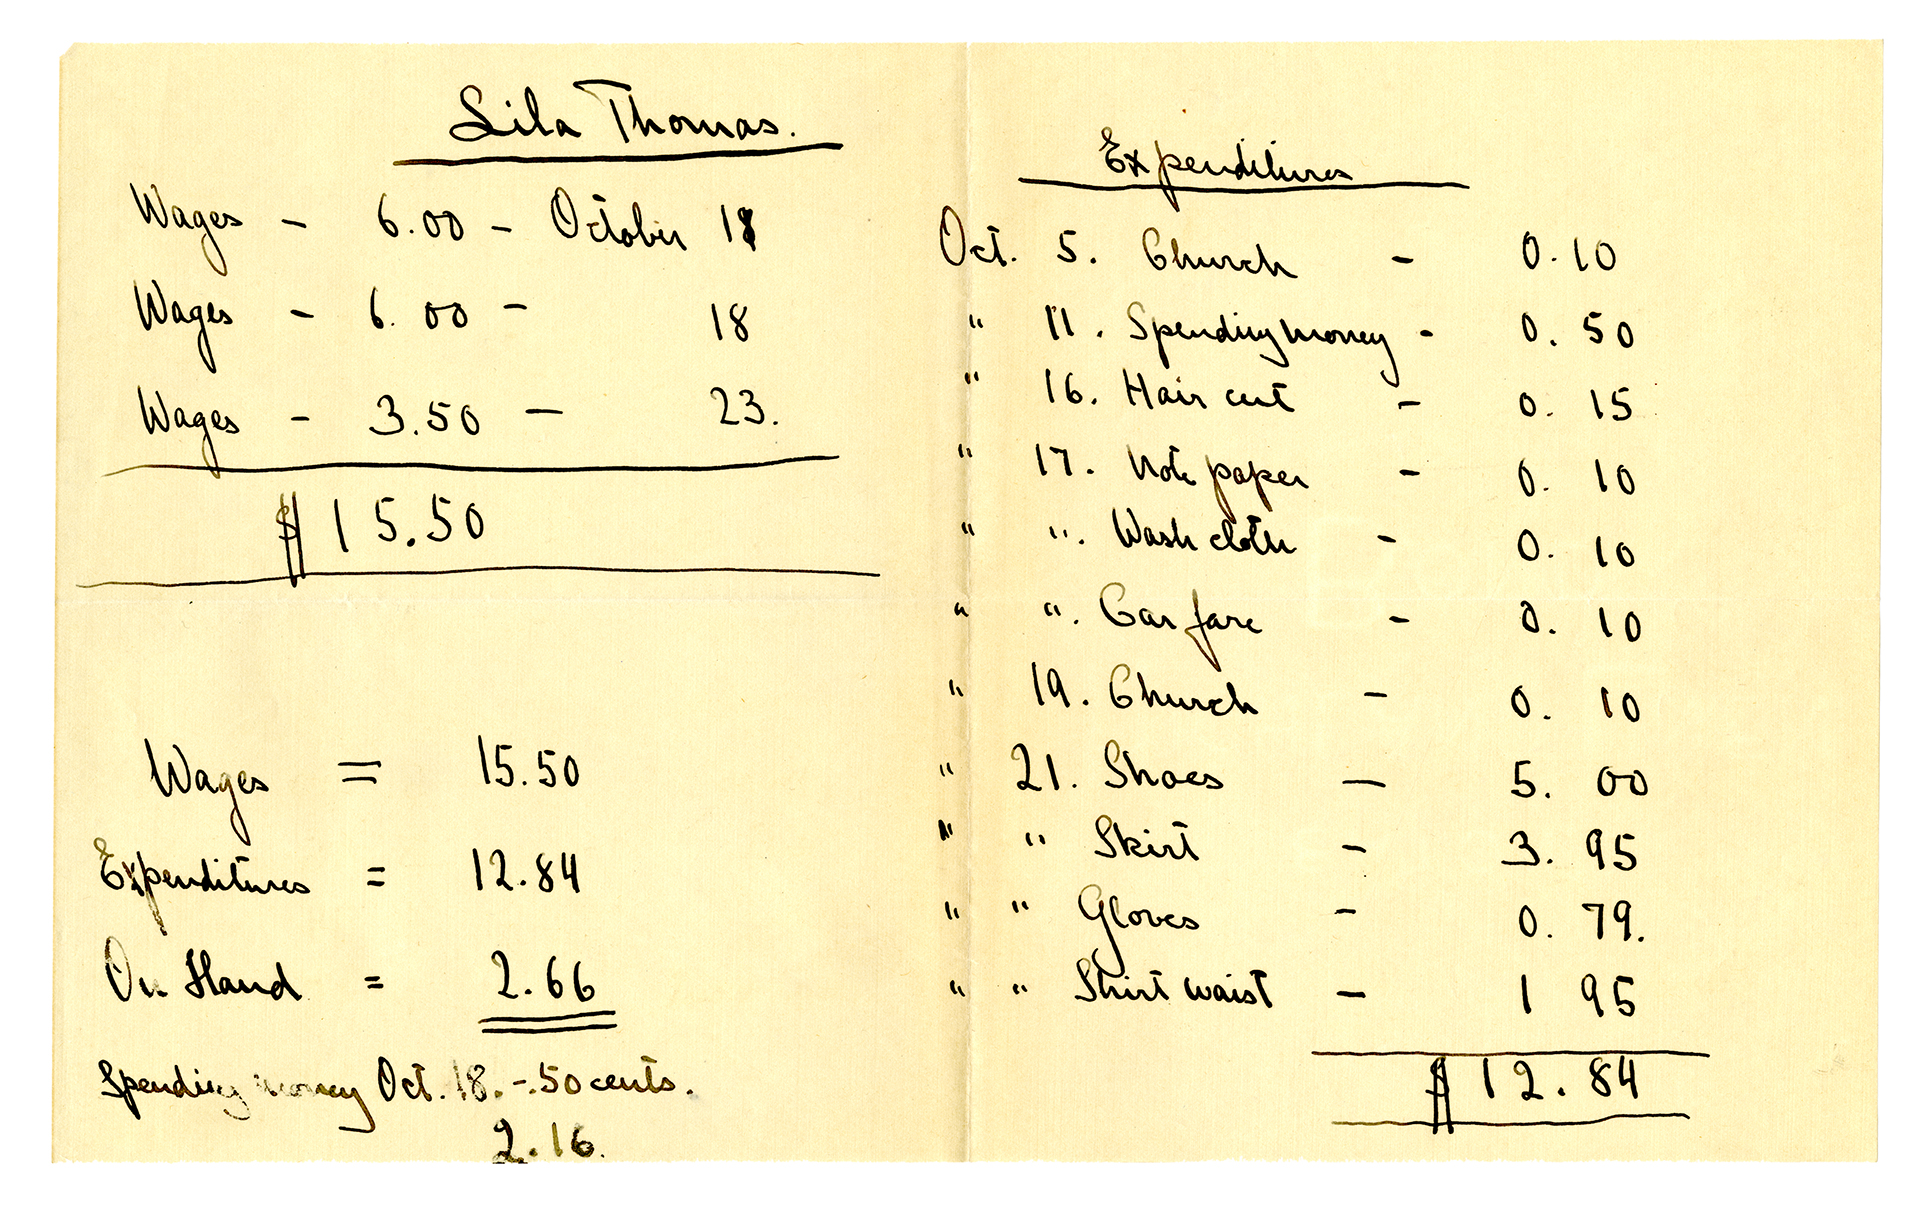 Lila Thomas.
Wages - 6.00 - October
Wages - 6.00 - 18
Wages - 3.50 - 23.
$15.50
Wages = 15.50
Expenditures = 12.84
On Hand = 2.66
Spending money Oct. 18. - .50 cents.
2.16.
Expenditures
Oct. 5. Church - 0.10
" 11. Spending money - 0.50
" 16. Hair cut - 0.15
" 17. Note paper - 0.10
" ". Wash cloth - 0.10
" ". Car fare - 0.10
" 19. Church - 0.10
" 21. Shoes - 5.00
" " Skirt - 3.95
" " Gloves - 0.79.
" " Shirt waist - 1 95
$12.84